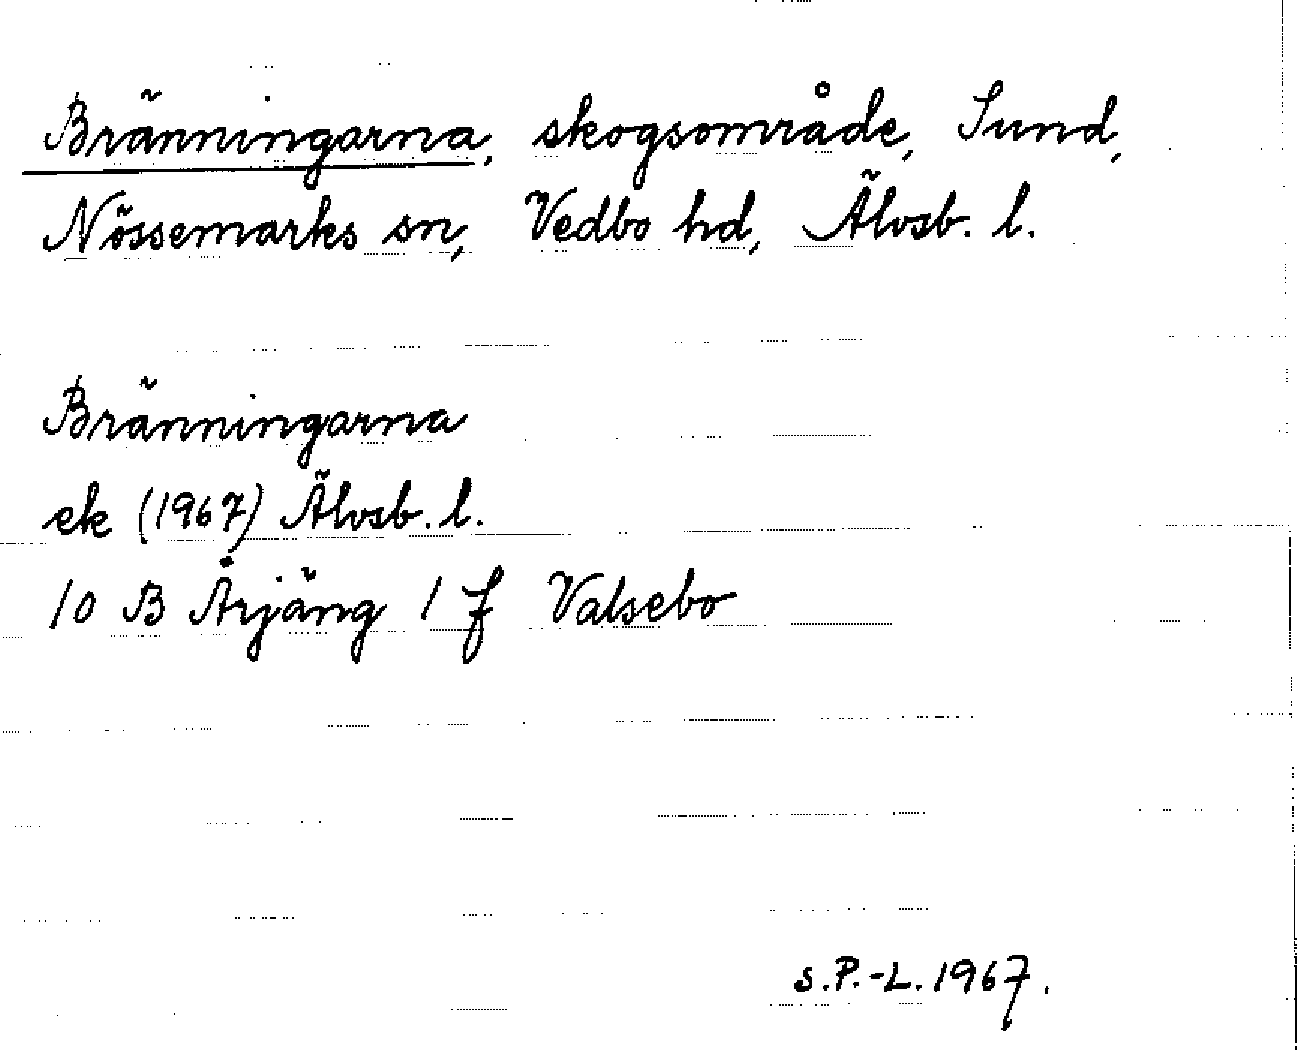 Bränningarna, skogsområde, Sund,
Nössemarks sn, Vedbo hd, Älvsb. l.
Bränningarna
ek (1967) Älvsb. l.
10 B Årjäng 1 f Valsebo
S.P.-L. 1967.